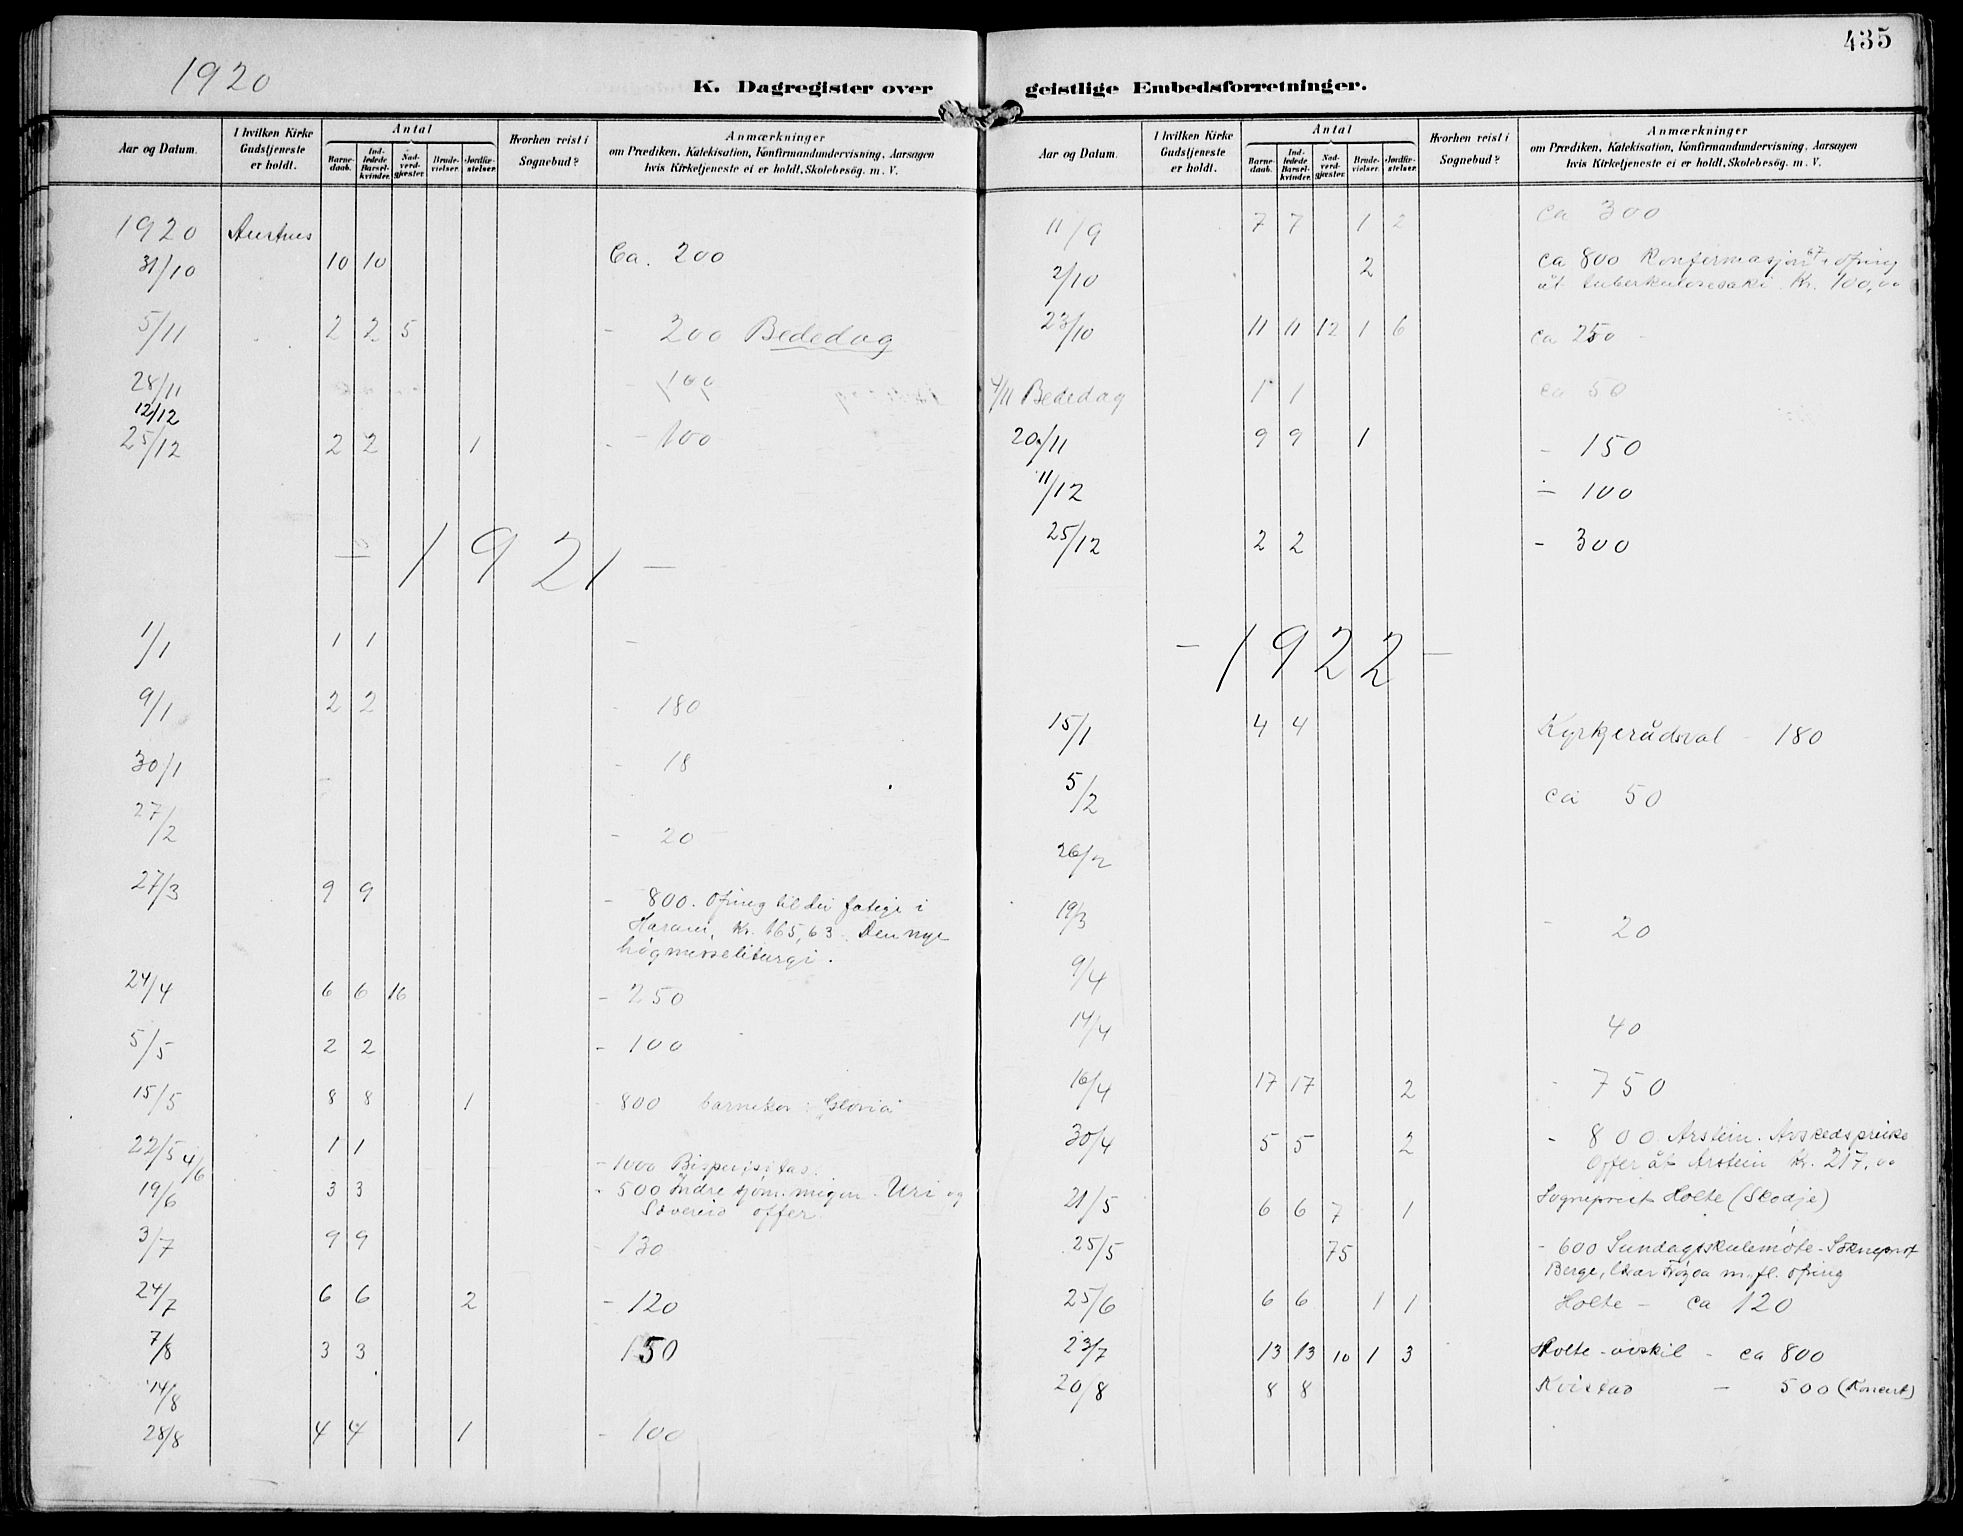 435
1920
K. Dagregister over geistlige Embedsforretninger.
Aar og Datum. | I hvilken Kirke Gudstjeneste er holdt. | Antal | Barnedaab. | Indledede Barselkvinder. | Nadverdgjæster. | Brudevielser. | Jordfæstelser. | Hvorhen reist i Sognebud? | Anmærkninger om Prædiken, Katekisation, Konfirmandundervisning, Aarsagen hvis Kirketjeneste ei er holdt, Skolebesøg. m. V.
1920
31/10 10 10 Ca. 200
5/11 2 2 5 - 200 Bededag
28/11 - 100
12/12
25/12 2 2 1 - 100
1921 -
1/1 1 1 -
9/1 2 2 - 180
30/1 - 18
27/2 - 20
27/3 9 9 - 800. Ofring til dei fatige i
Haram, Kr. 165,63. Den nye
høgmesseliturgi.
24/4 6 6 16 - 250
5/5 2 2 - 100
15/5 8 8 1 - 800 barnekor
22/5 1 1
4/6 - 1000 Bispevisitas.
19/6 3 3 - 500 Indre sjøm. Uri og
offer.
3/7 9 9 - 130
24/7 6 6 2 - 120
7/8 3 3 150
14/8
28/8 4 4 1 - 100
Aar og Datum. | I hvilken Kirke Gudstjeneste er holdt. | Antal | Barnedaab. | Indledede Barselkvinder. | Nadverdgjæster. | Brudevielser. | Jordfæstelser. | Hvorhen reist i Sognebud? | Anmærkninger om Prædiken, Katekisation, Konfirmandundervisning, Aarsagen hvis Kirketjeneste ei er holdt, Skolebesøg. m. V.
11/9 7 7 1 2 ca 300
2/10 2 ca 800 Konfirmasjon ofring
åt tuberkulosesaki. Kr. 100,00
23/10 11 11 12 1 6 ca 250
4/11 Bededag 1 1 ca 50
20/11 9 9 1 - 150
11/12 - 100
25/12 2 2 - 300
- 1922 -
15/1 4 4 Kyrkjerådsval - 180
5/2 ca 50
26/2
19/3 - 20
9/4
14/4 40
16/4 17 17 2 - 750
30/4 5 5 2 - 800 Arstein. Avskedspreike
Offer åt Arstein Kr. 217,00
21/5 6 6 7 1 Sogneprest Holte (Skodje)
25/5 75 - 600 Sundagsskulemøte - Sokneprest
Berge, m. fl. ofring
25/6 6 6 1 1 Holte - ca 120
23/7 13 13 10 1 3 Holte - avskil - ca 800
20/8 8 8 Kvistad - 500 (Koncert)